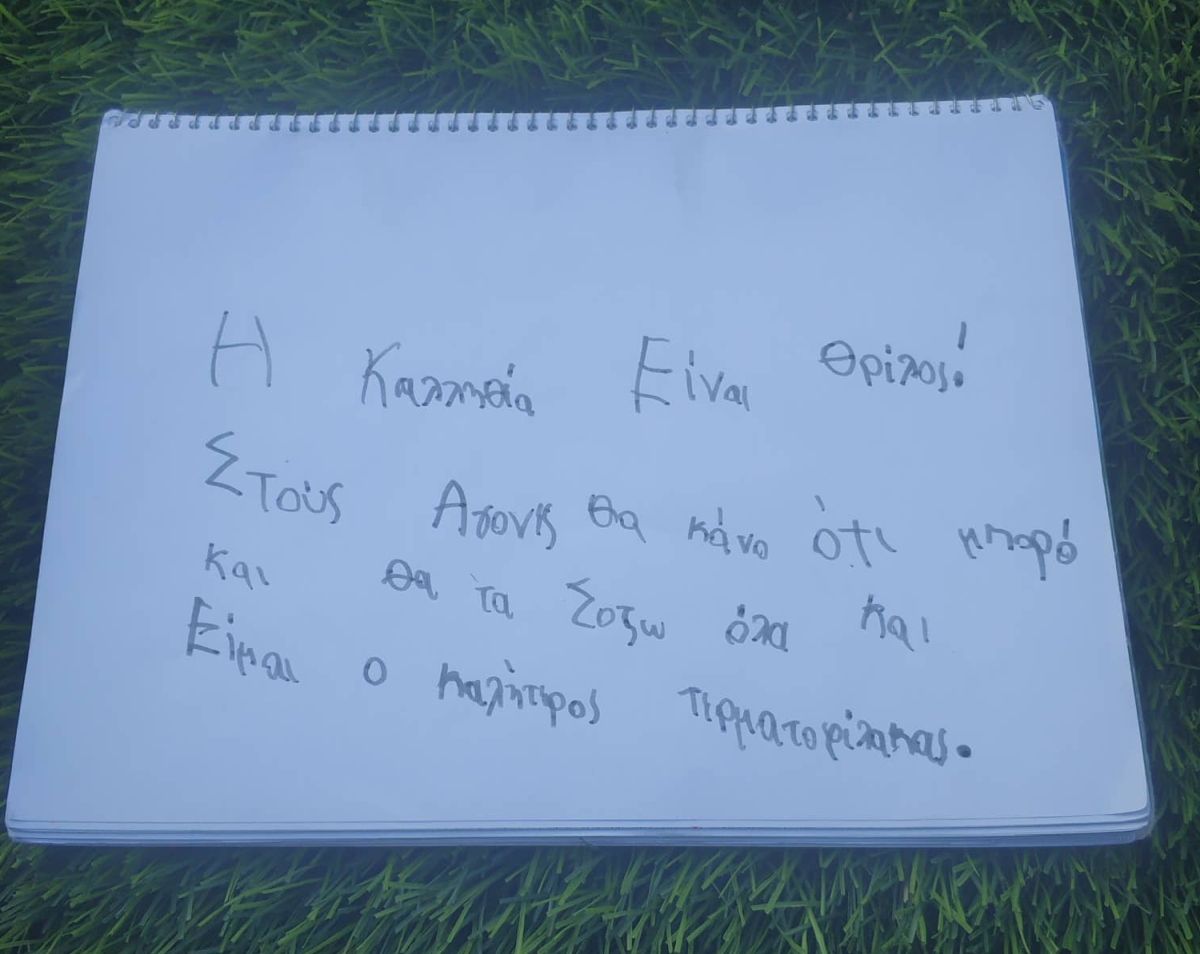 Η Καλληθία Είναι Θρίλος!
Στους Αγονης θα κάνο ότι μπορό
και θα τα Σοζω όλα και
Είμαι ο καλήτερος τερματοφίλακας.